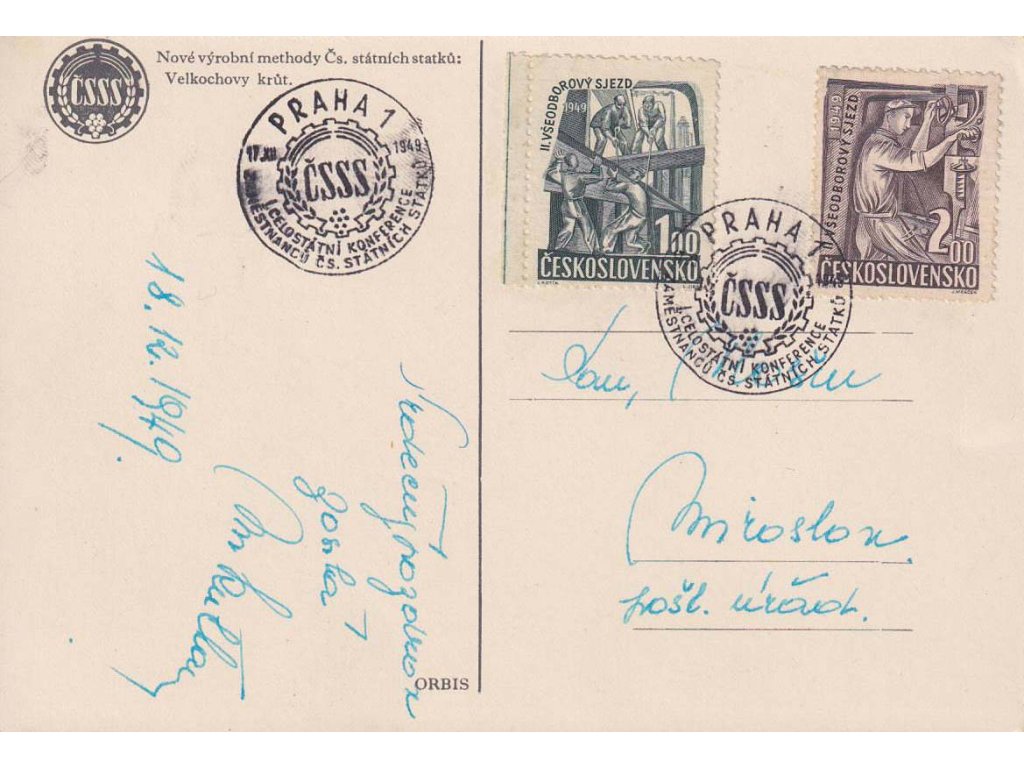 ČSSS
Nové výrobní methody Čs. státních statků:
Velkochovy krůt.
PRAHA 1
17.XII. 1949
ČSSS
I. CELOSTÁTNÍ KONFERENCE
ZAMĚSTNANCŮ ČS. STÁTNÍCH STATKŮ
18.12.1949.
Srdečný pozdrav
ORBIS
II. VŠEODBOROVÝ SJEZD
1949
1.00
ČESKOSLOVENSKO
II. VŠEODBOROVÝ SJEZD
1949
2.00
ČESKOSLOVENSKO
PRAHA 1
ČSSS
I. CELOSTÁTNÍ KONFERENCE
ZAMĚSTNANCŮ ČS. STÁTNÍCH STATKŮ
Miroslav.
pošt. úřad.